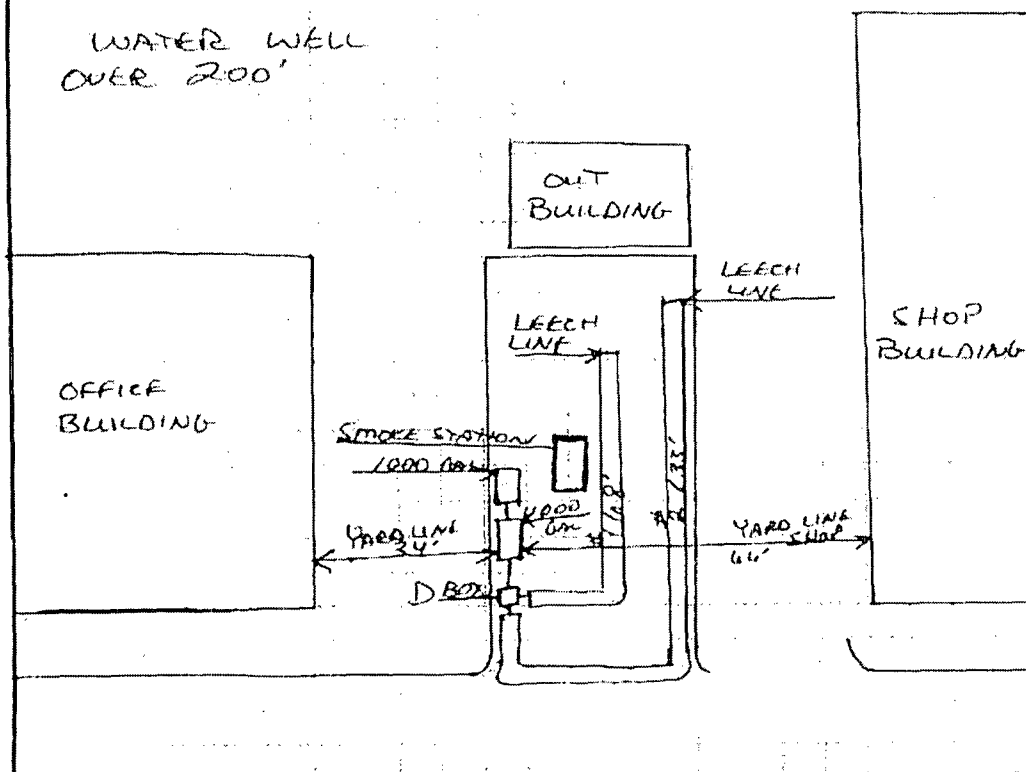 WATER WELL
OVER 200'
OUT
BUILDING
LEECH
LINE
LEECH
LINE
SHOP
BUILDING
OFFICE
BUILDING
SMOKE STATION
1000 GAL
1000
GAL
YARD LINE
34'
YARD LINE
SHOP
66'
D BOX